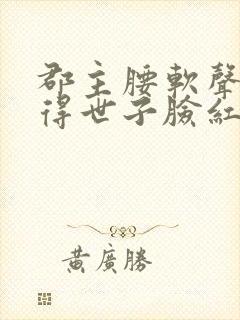 郡主腰軟聲
得世子臉紅
黃廣勝